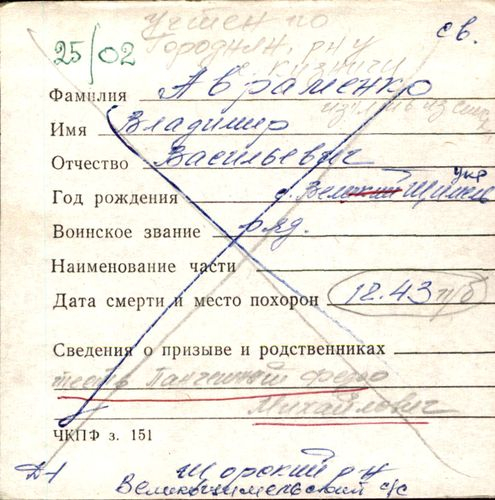 Учтен по
св.
25/02
Городнян. рну
Фамилия Авраменко
Имя Владимир
Отчество Васильевич
укр
Год рождения д. Великий Щимель
Воинское звание ряд.
Наименование части
Дата смерти и место похорон 12.43 п/б
Сведения о призыве и родственниках
тесть Панченный
Михайлович
ЧКПФ з. 151
Щорский р-н
Великощимельский с/с